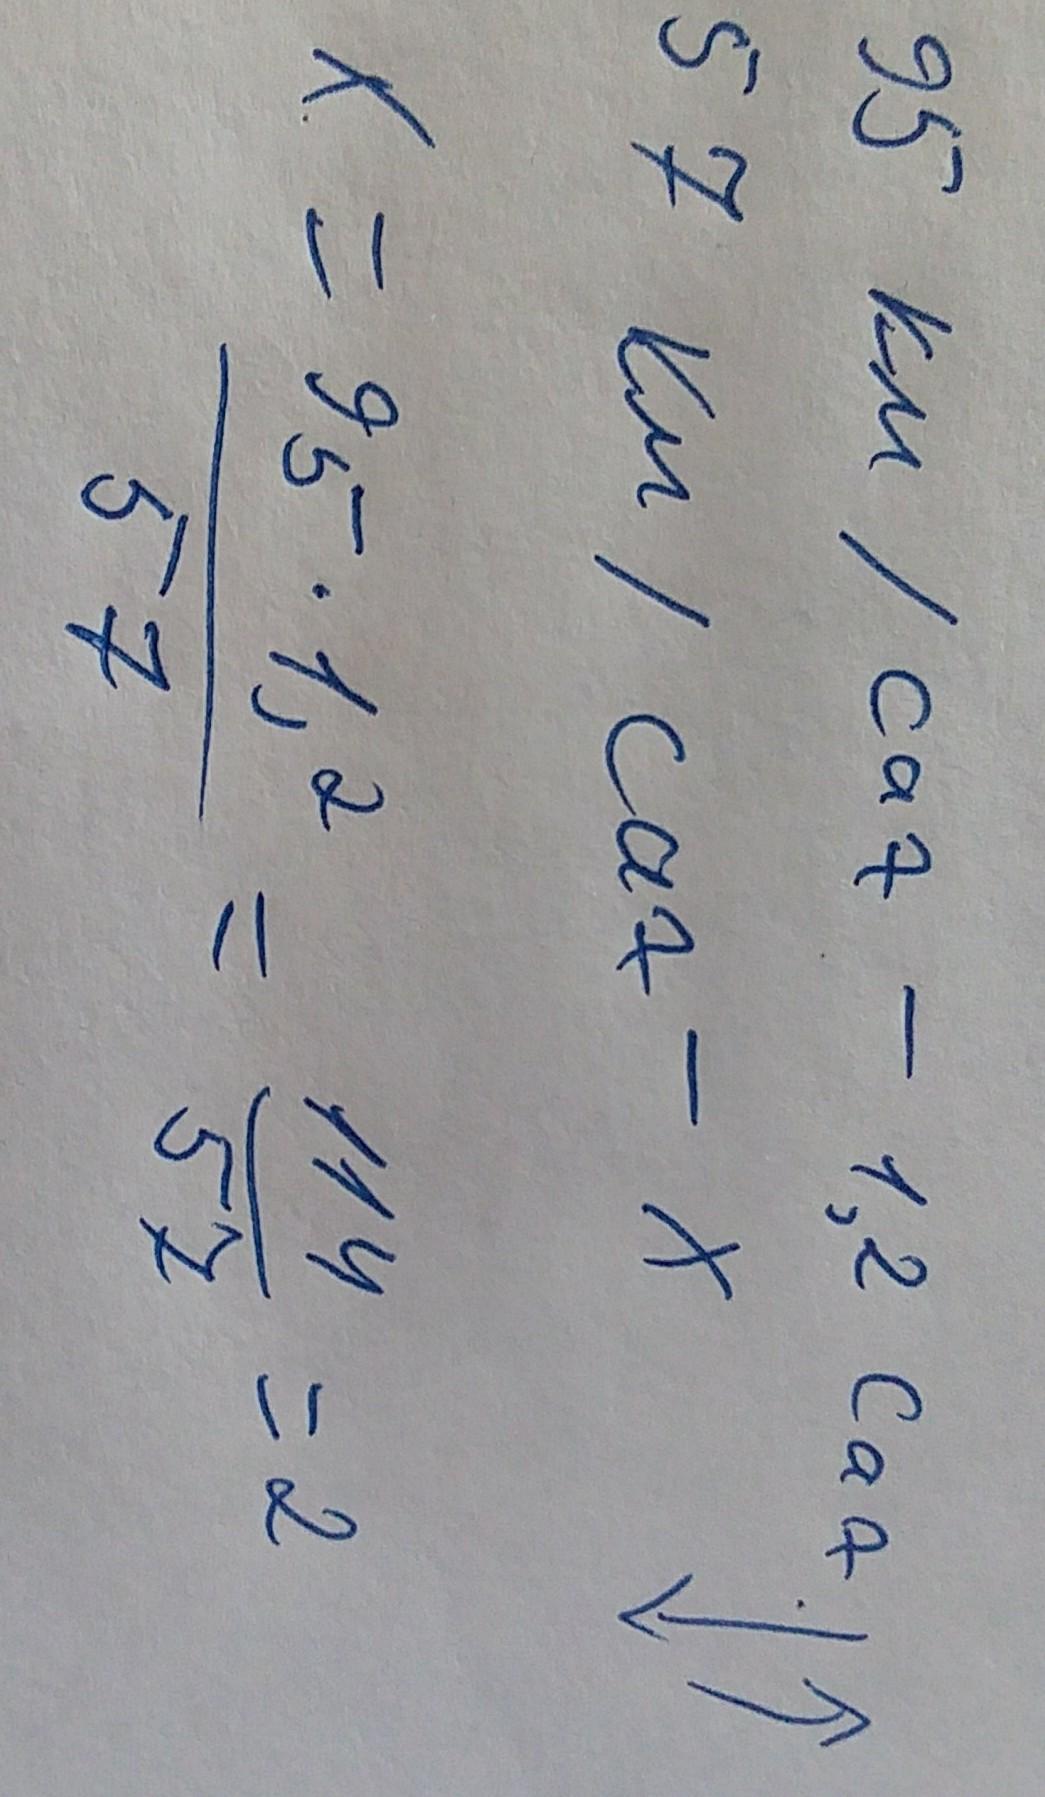 95 км/сат - 1,2 сат ↓↑
57 км/сат - x
x = 95·1,2 / 57 = 114 / 57 = 2